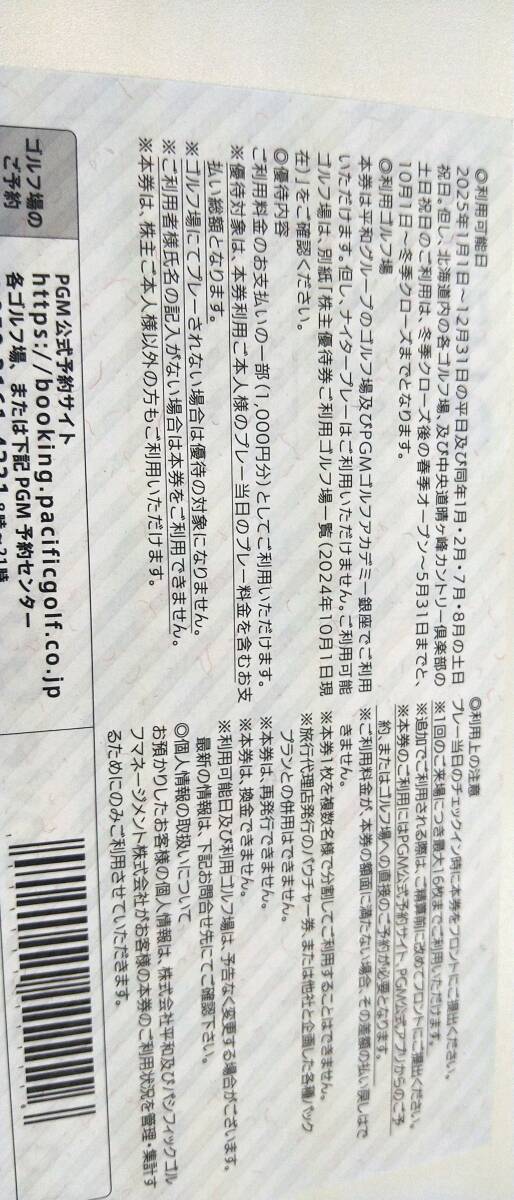 ◎利用可能日
2025年1月1日～12月31日の平日及び同年1月・2月・7月・8月の土日
祝日。但し、北海道内の各ゴルフ場、及び中央道晴ヶ峰カントリー倶楽部の
土日祝日のご利用は、冬季クローズ後の春季オープン～5月31日までと、
10月1日～冬季クローズまでとなります。
◎利用ゴルフ場
本券は平和グループのゴルフ場及びPGMゴルフアカデミー銀座でご利用
いただけます。但し、ナイタープレーはご利用いただけません。ご利用可能
ゴルフ場は、別紙「株主優待券ご利用ゴルフ場一覧(2024年10月1日現
在)」をご確認ください。
◎優待内容
ご利用料金のお支払いの一部(1,000円分)としてご利用いただけます。
※優待対象は、本券利用ご本人様のプレー当日のプレー料金を含むお支
払い総額となります。
※ゴルフ場にてプレーされない場合は優待の対象になりません。
※ご利用者様氏名の記入がない場合は本券をご利用できません。
※本券は、株主ご本人様以外の方もご利用いただけます。
◎利用上の注意
プレー当日のチェックイン時に本券をフロントにご提出ください。
※1回のご来場につき最大16枚までご利用いただけます。
※追加でご利用される際は、ご精算前に改めてフロントにご提出ください。
※本券のご利用にはPGM公式予約サイト、PGM公式アプリからのご予
約、またはゴルフ場への直接のご予約が必要となります。
※ご利用料金が、本券の額面に満たない場合、その差額の払い戻しはで
きません。
※本券1枚を複数名様で分割してご利用することはできません。
※旅行代理店発行のバウチャー券、または他社と企画した各種パック
プランとの併用はできません。
※本券は、再発行できません。
※本券は、換金できません。
※利用可能日及び利用ゴルフ場は、予告なく変更する場合がございます。
最新の情報は、下記お問合せ先にてご確認下さい。
◎個人情報の取扱いについて
お預かりしたお客様の個人情報は、株式会社平和及びパシフィックゴル
フマネージメント株式会社がお客様の本券のご利用状況を管理・集計す
るためにのみご利用させていただきます。
ゴルフ場の
ご予約
PGM公式予約サイト
https://booking.pacificgolf.co.jp
各ゴルフ場、または下記PGM予約センター